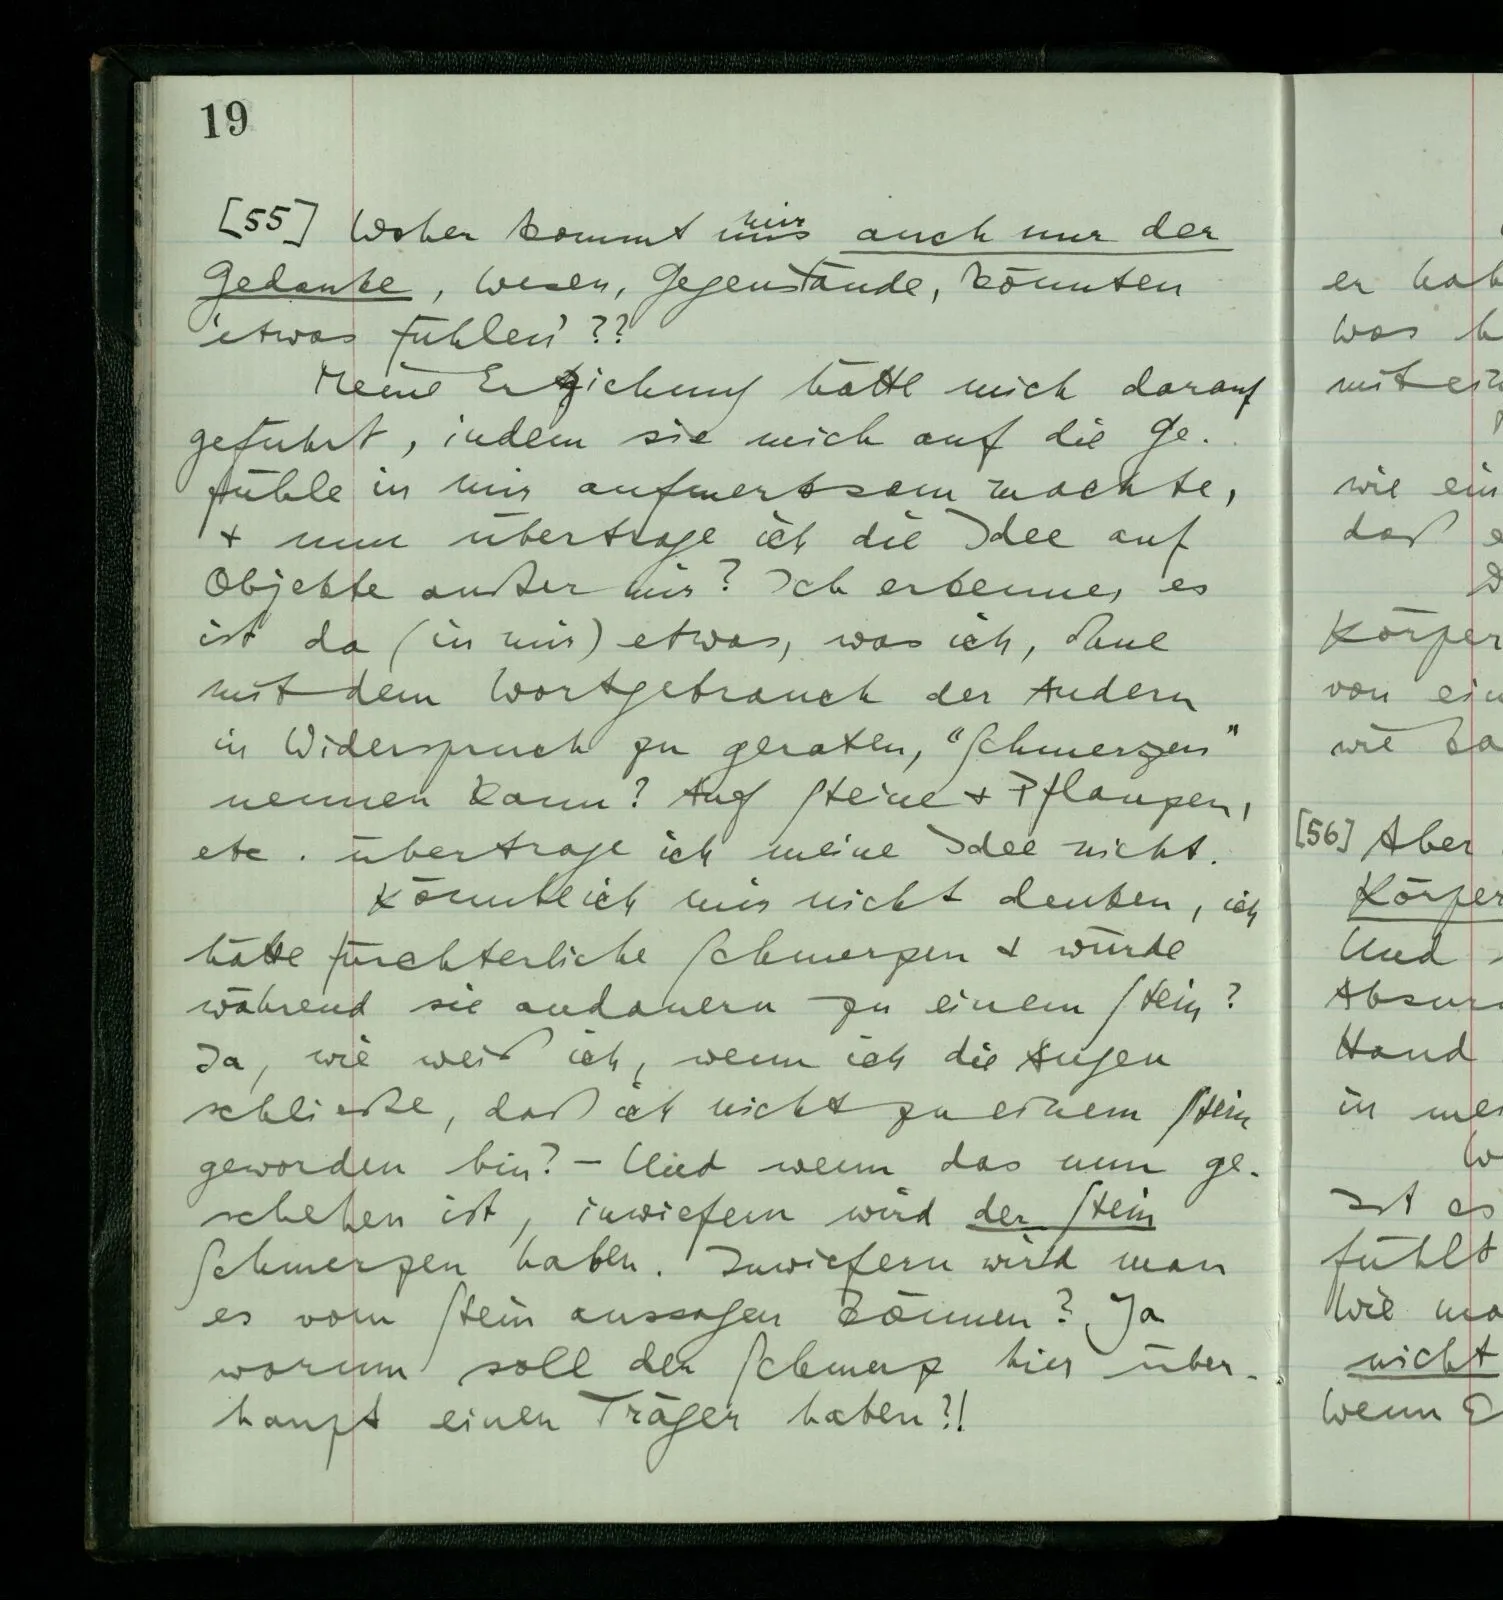 19
[55] Woher kommt uns mir auch nur der
Gedanke, Wesen, Gegenstände, könnten
'etwas fühlen' ??
Meine Erziehung hätte mich darauf
geführt, indem sie mich auf die Ge-
fühle in mir aufmerksam machte,
+ nun übertrage ich die Idee auf
Objekte außer mir? Ich erkenne, es
ist da (in mir) etwas, was ich, ohne
mit dem Wortgebrauch der Andern
in Widerspruch zu geraten, "Schmerzen"
nennen kann? Auf Steine + Pflanzen,
etc. übertrage ich meine Idee nicht.
Könnte ich mir nicht denken, ich
hätte fürchterliche Schmerzen + würde
während sie andauern zu einem Stein?
Ja, wie weiß ich, wenn ich die Augen
schließe, daß ich nicht zu einem Stein
geworden bin? – Und wenn das nun ge-
schehen ist, inwiefern wird der Stein
Schmerzen haben. Inwiefern wird man
es vom Stein aussagen können? Ja
warum soll der Schmerz hier über-
haupt einen Träger haben?!
er hab
was h
mit ein
wie ein
daß e
D
Körper
von ein
wie ka
[56] Aber
Körper
Und
Absur
Hand
in mei
W
Ist es
fühlt
Wie ma
nicht
Wenn E